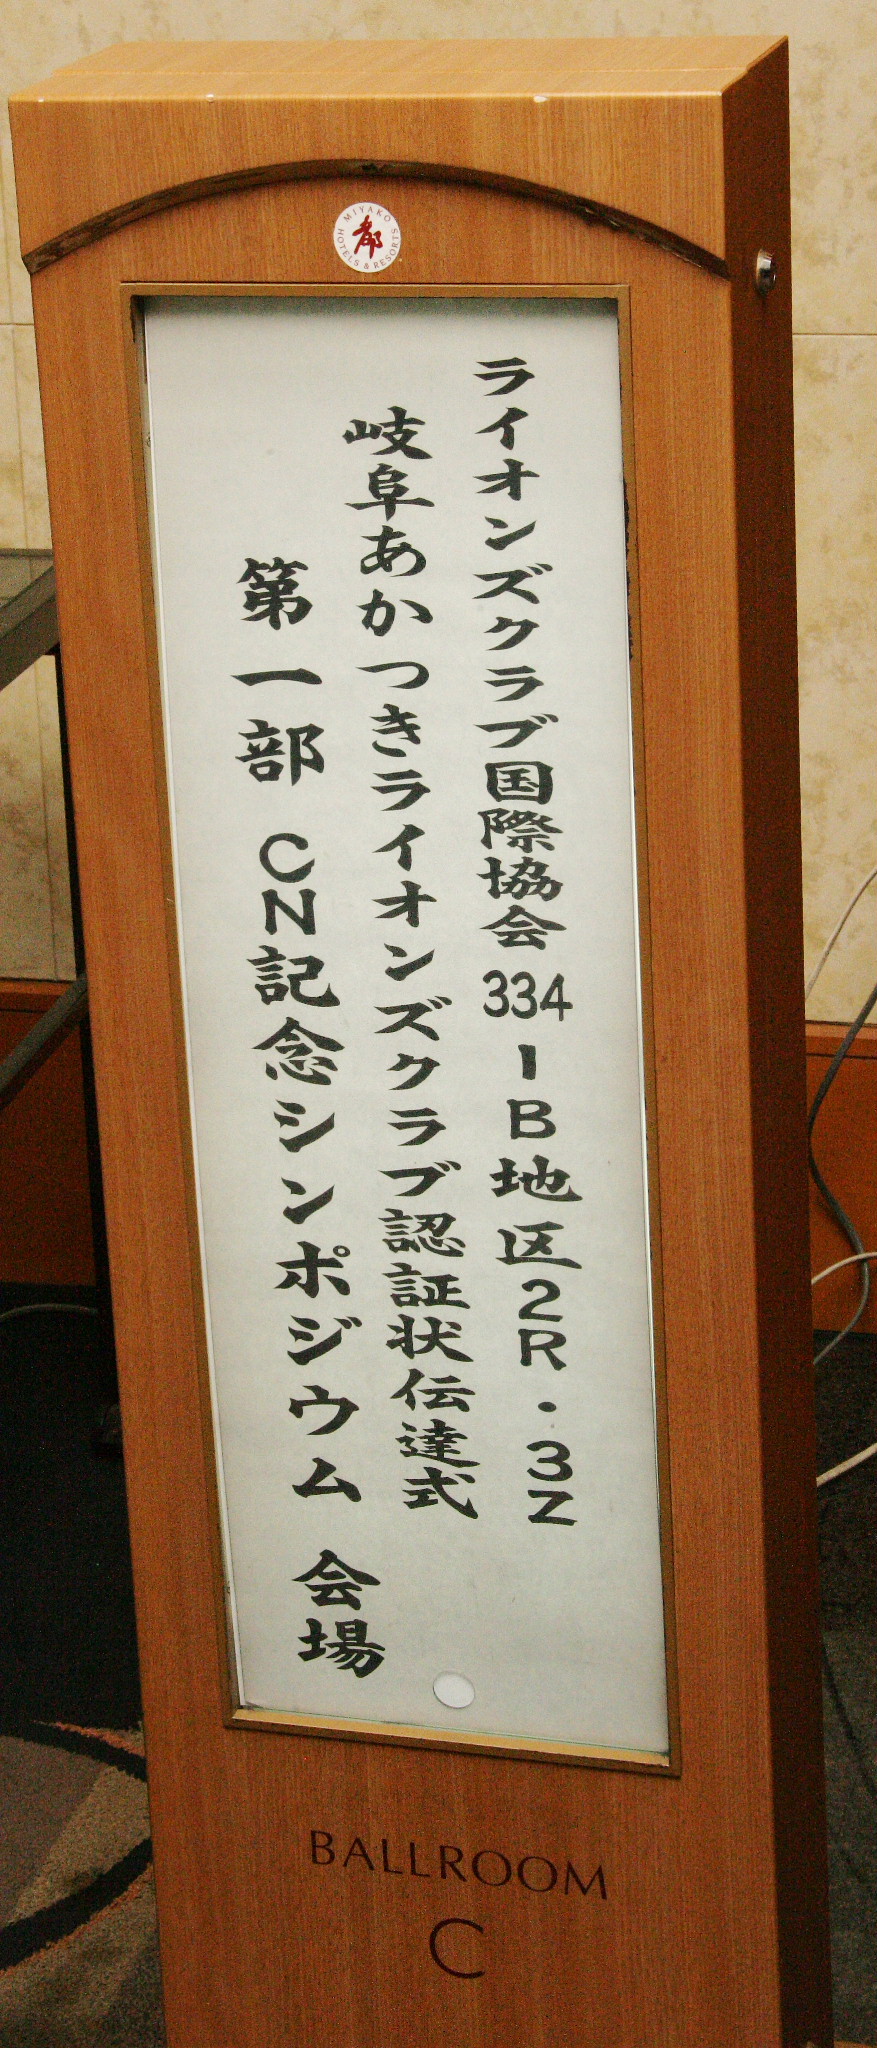 MIYAKO HOTELS & RESORTS
都
ライオンズクラブ国際協会 334-B地区2R・3Z
岐阜あかつきライオンズクラブ認証状伝達式
第一部 CN記念シンポジウム 会場
BALLROOM
C